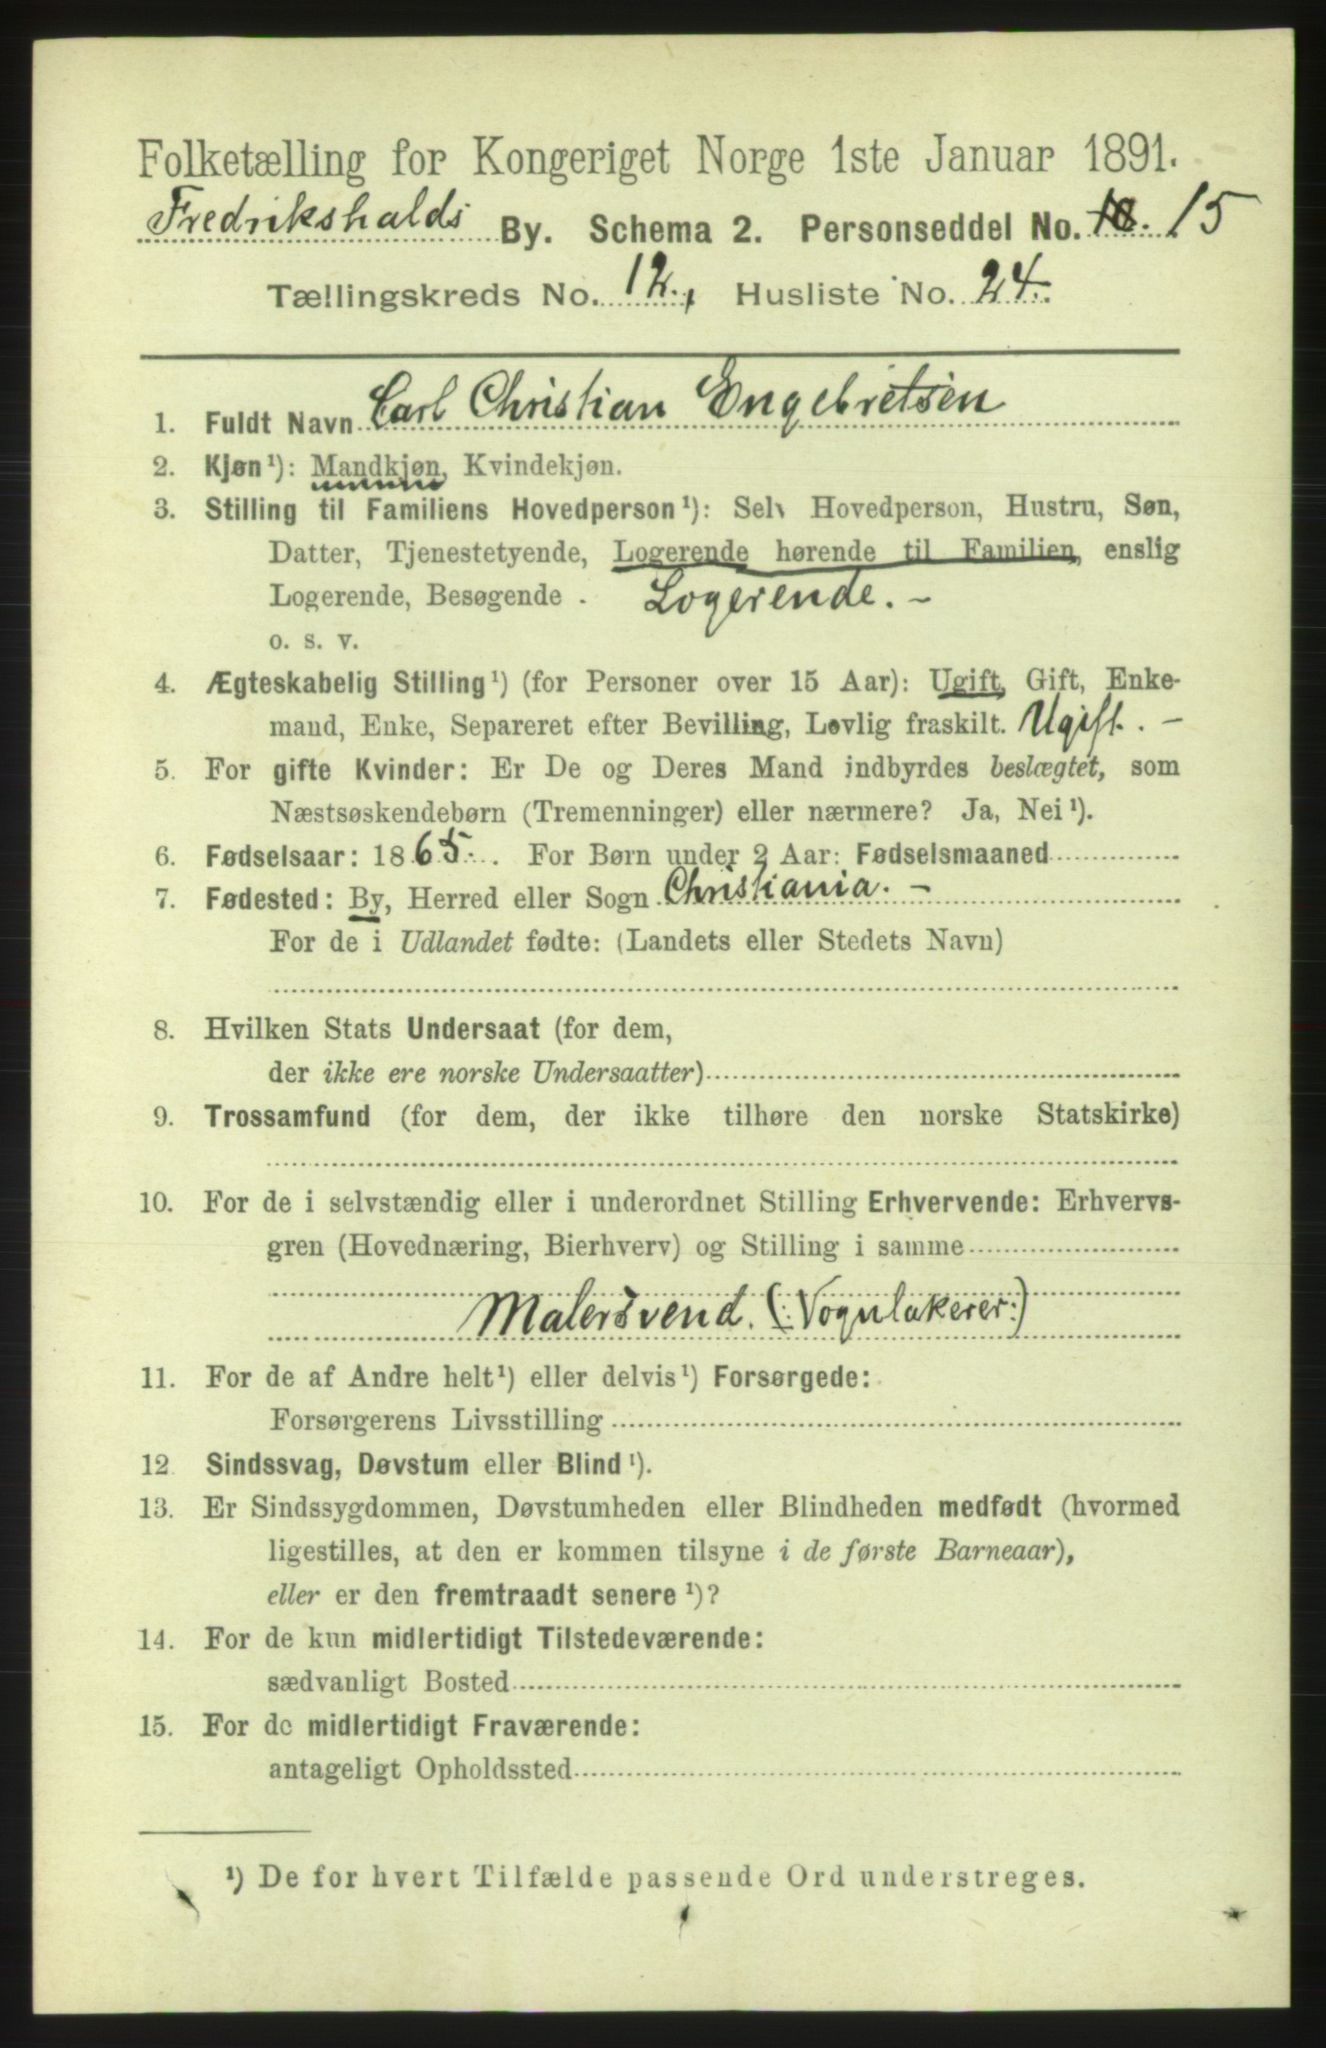 Folketælling for Kongeriget Norge 1ste Januar 1891.
Fredrikshalds By. Schema 2. Personseddel No. 15
Tællingskreds No. 12, Husliste No. 24.
1. Fuldt Navn Carl Christian Engebretsen
2. Kjøn¹): Mandkjøn, Kvindekjøn.
3. Stilling til Familiens Hovedperson¹): Selv Hovedperson, Hustru, Søn,
Datter, Tjenestetyende, Logerende hørende til Familien, enslig
Logerende, Besøgende . Logerende. –
o. s. v.
4. Ægteskabelig Stilling¹) (for Personer over 15 Aar): Ugift, Gift, Enke-
mand, Enke, Separeret efter Bevilling, Lovlig fraskilt. Ugift. –
5. For gifte Kvinder: Er De og Deres Mand indbyrdes beslægtet, som
Næstsøskendebørn (Tremenninger) eller nærmere? Ja, Nei¹).
6. Fødselsaar: 1865. For Børn under 2 Aar: Fødselsmaaned
7. Fødested: By, Herred eller Sogn Christiania. –
For de i Udlandet fødte: (Landets eller Stedets Navn)
8. Hvilken Stats Undersaat (for dem,
der ikke ere norske Undersaatter)
9. Trossamfund (for dem, der ikke tilhøre den norske Statskirke)
10. For de i selvstændig eller i underordnet Stilling Erhvervende: Erhvervs-
gren (Hovednæring, Bierhverv) og Stilling i samme
Malersvend. (: Vognlakerer:)
11. For de af Andre helt¹) eller delvis¹) Forsørgede:
Forsørgerens Livsstilling
12. Sindssvag, Døvstum eller Blind¹).
13. Er Sindssygdommen, Døvstumheden eller Blindheden medfødt (hvormed
ligestilles, at den er kommen tilsyne i de første Barneaar),
eller er den fremtraadt senere¹)?
14. For de kun midlertidigt Tilstedeværende:
sædvanligt Bosted
15. For de midlertidigt Fraværende:
antageligt Opholdssted
¹) De for hvert Tilfælde passende Ord understreges.